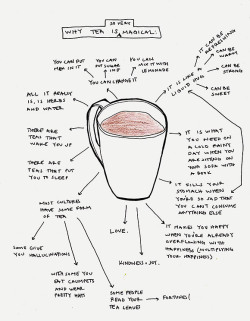 SO VERY
WHY TEA IS MAGICAL:
YOU CAN PUT
MILK IN IT
YOU
CAN
PUT SUGAR
IN IT
YOU CAN
MIX IT WITH
LEMONADE
YOU CAN CHANGE IT
IT IS LIKE A
LIQUID HUG
IT CAN BE
REFRESHING
IT CAN BE
WARM
IT CAN BE
STRONG
IT CAN BE
SWEET
ALL IT REALLY
IS, IS HERBS
AND WATER
THERE ARE
TEAS THAT
WAKE YOU UP
THERE ARE
TEAS THAT PUT
YOU TO SLEEP
MOST CULTURES
HAVE SOME FORM
OF TEA
SOME GIVE
YOU HALLUCINATIONS
WITH SOME YOU
EAT CRUMPETS
AND WEAR
PRETTY HATS
SOME PEOPLE
READ YOUR
TEA LEAVES
FORTUNES!
LOVE.
KINDNESS + JOY.
IT IS WHAT
YOU NEED ON
A COLD RAINY
DAY WHEN YOU
ARE SITTING ON
YOUR SOFA WITH
A BOOK
IT FILLS YOUR
STOMACH WHEN
YOU'RE SO SAD THAT
YOU CAN'T CONSUME
ANYTHING ELSE
IT MAKES YOU HAPPY
WHEN YOU'RE ALREADY
OVERFLOWING WITH
HAPPINESS (MULTIPLYING
YOUR HAPPINESS)